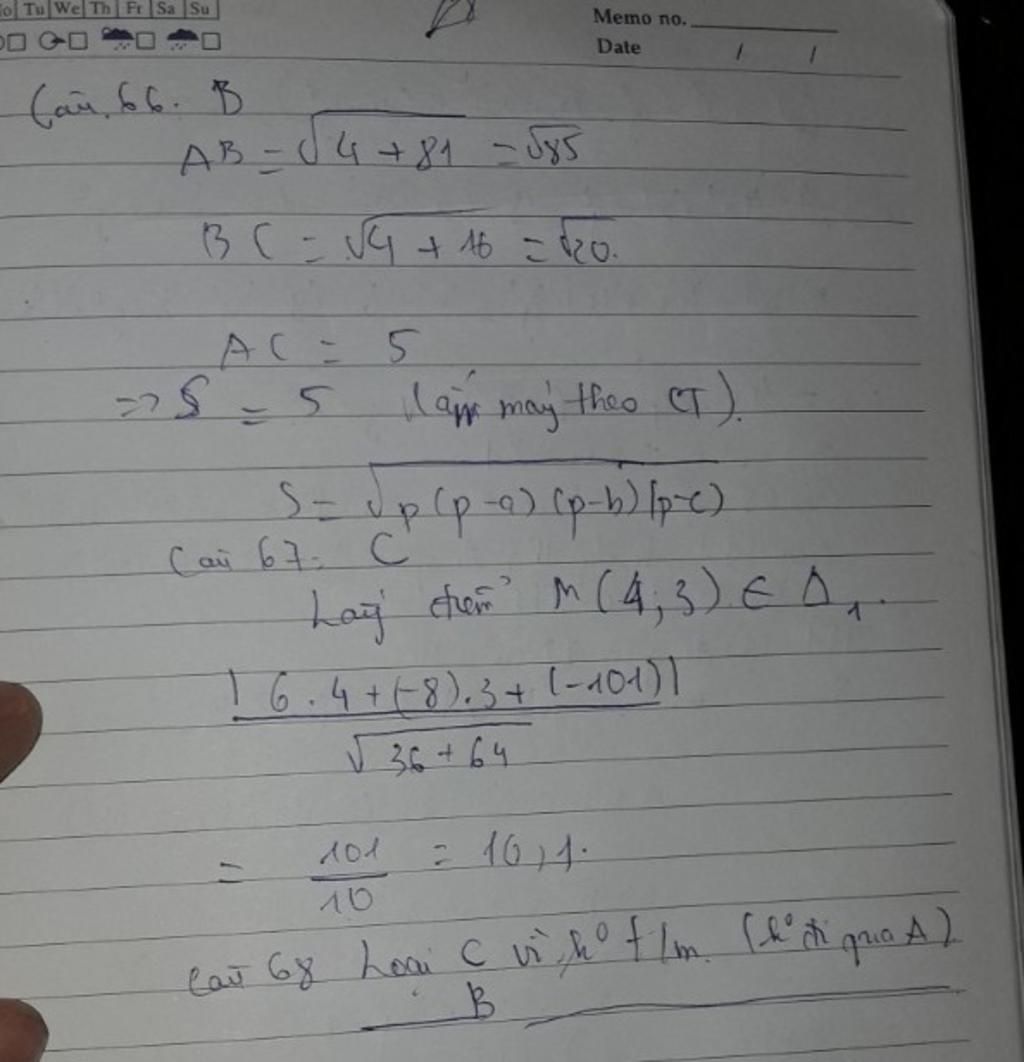 Tu We Th Fr Sa Su
Memo no.
Date / /
Câu 66. B
AB = √4 + 81 = √85
BC = √4 + 16 = √20.
AC = 5
=> S = 5 (bấm máy theo CT).
S = √p(p-a)(p-b)(p-c)
Câu 67: C
Lấy điểm M(4;3) ∈ Δ1.
|6.4+(-8).3+(-101)|
√36+64
= 101/10 = 10,1.
Câu 68 Loại C vì ko t/m. (ko đi qua A)
B